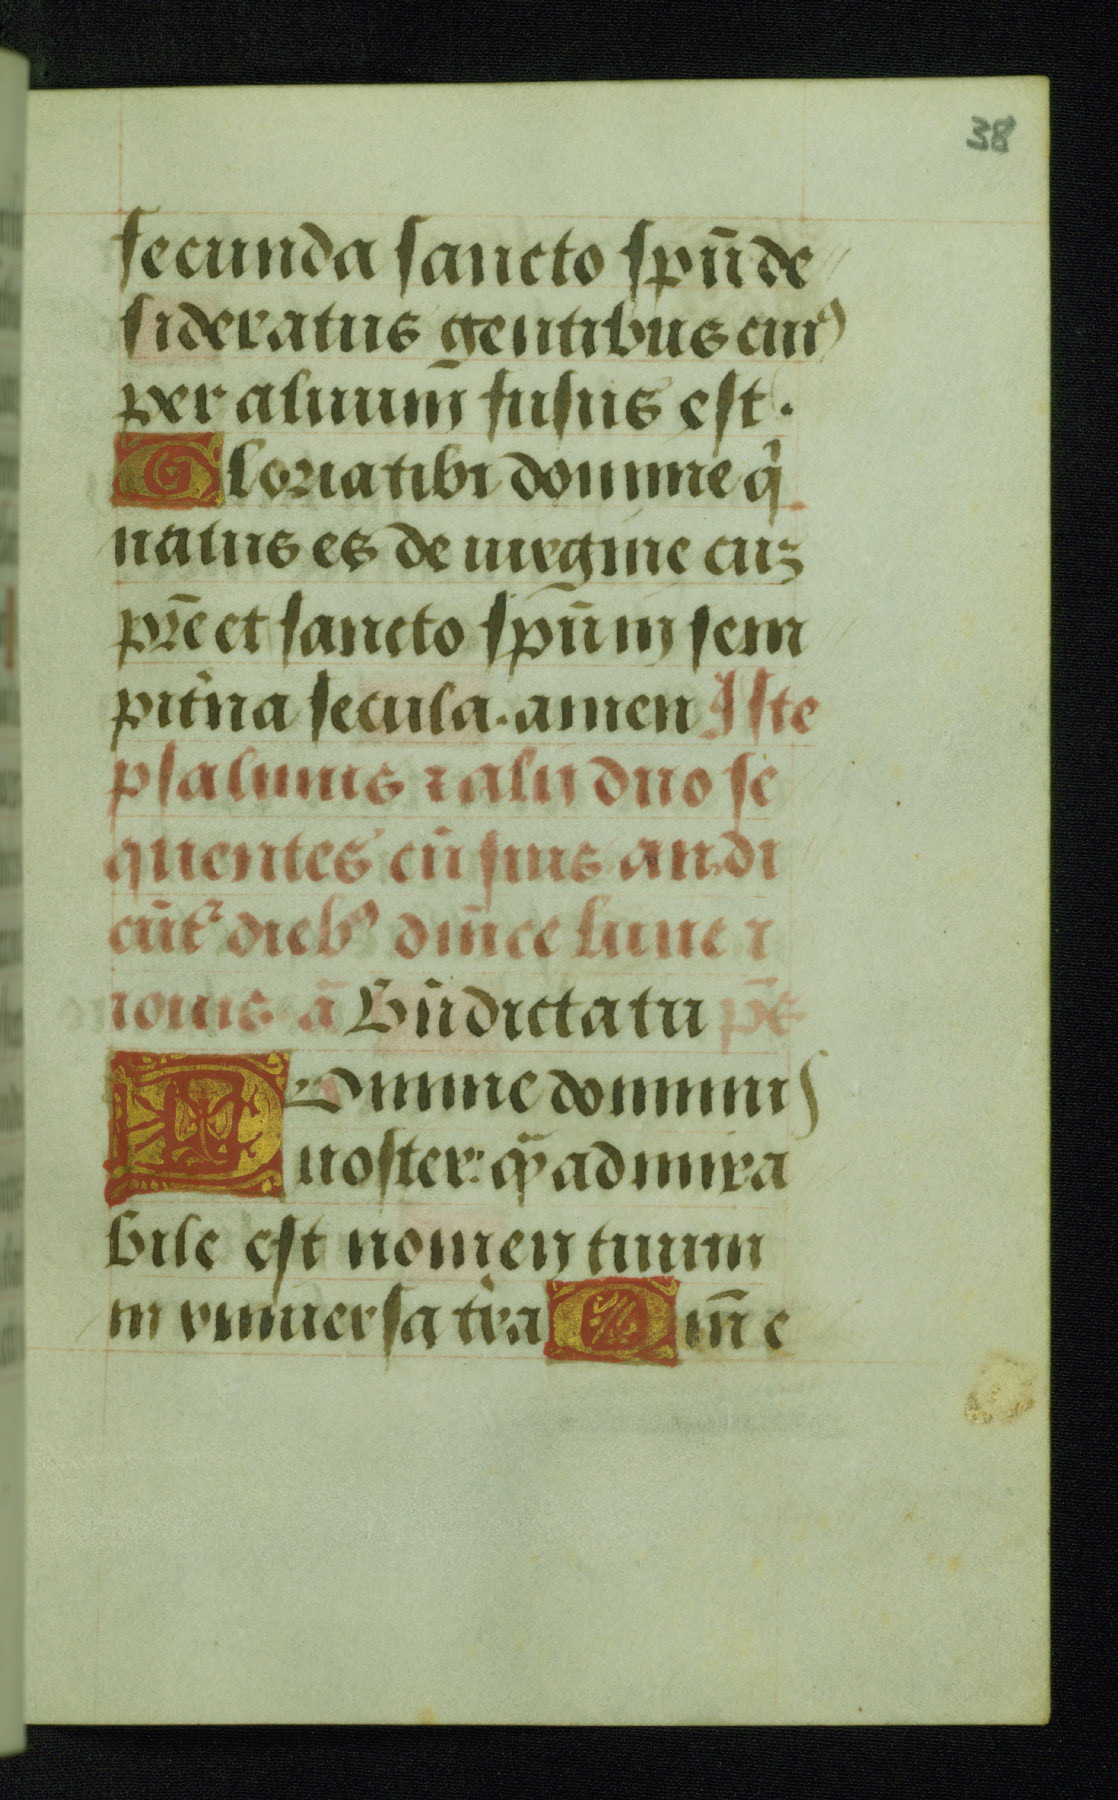 38
secunda sancto spũ de
sideratus gentibus cuiꝰ
per aluum fusus est.
Gloria tibi domine q̇
natus es de uirgine cuz
pr̃e et sancto spũ in sem
pit'na secula. amen Iste
psalmus ⁊ alii duo se
quentes cũ suis an. di
cũt᷑ diebꝰ dñice lune ⁊
iouis. ã Bñdicta tu ps̃
Domine dominus
noster: q̃ admira
bile est nomen tuum
in vniuersa t'ra Qm̃ e